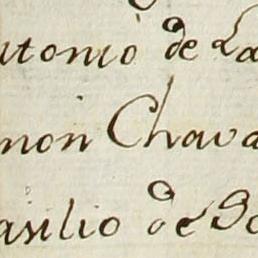 utonio de La
mon Chava
asilio de So